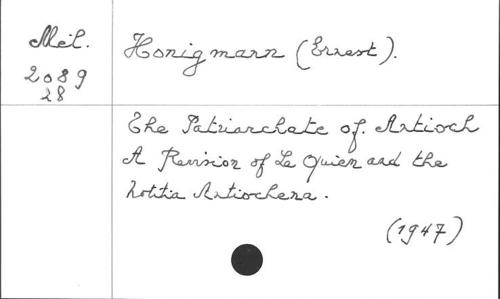 Mél.
2089
28
Honigmann (Ernest).
The Patriarchate of Antioch
A Revision of Le Quien and the
Notitia Antiochena.
(1947)